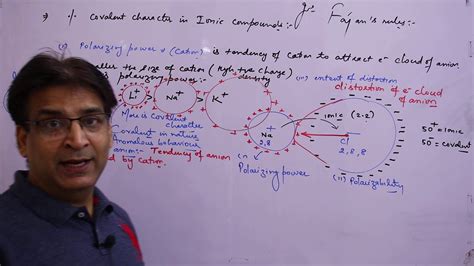 % Covalent character in Ionic compounds:- Fajan's rules:-
(i) Polarizing power of (Cation) is tendency of cation to attract e⁻ cloud of anion
the size of cation (high +ve charge)
density
is polarizing power:-
(iii) extent of distortion
distortion of e⁻ cloud
of anion
Li⁺ > Na⁺ > K⁺
More is covalent
character
covalent in nature
Anomalous behaviour
anion:- Tendency of anion
by cation.
Na
2,8
ionic (2.2)
Cl⁻
2,8,8
50⁺ = ionic
50 = covalent
(i)
Polarizing power
(ii) Polarizability